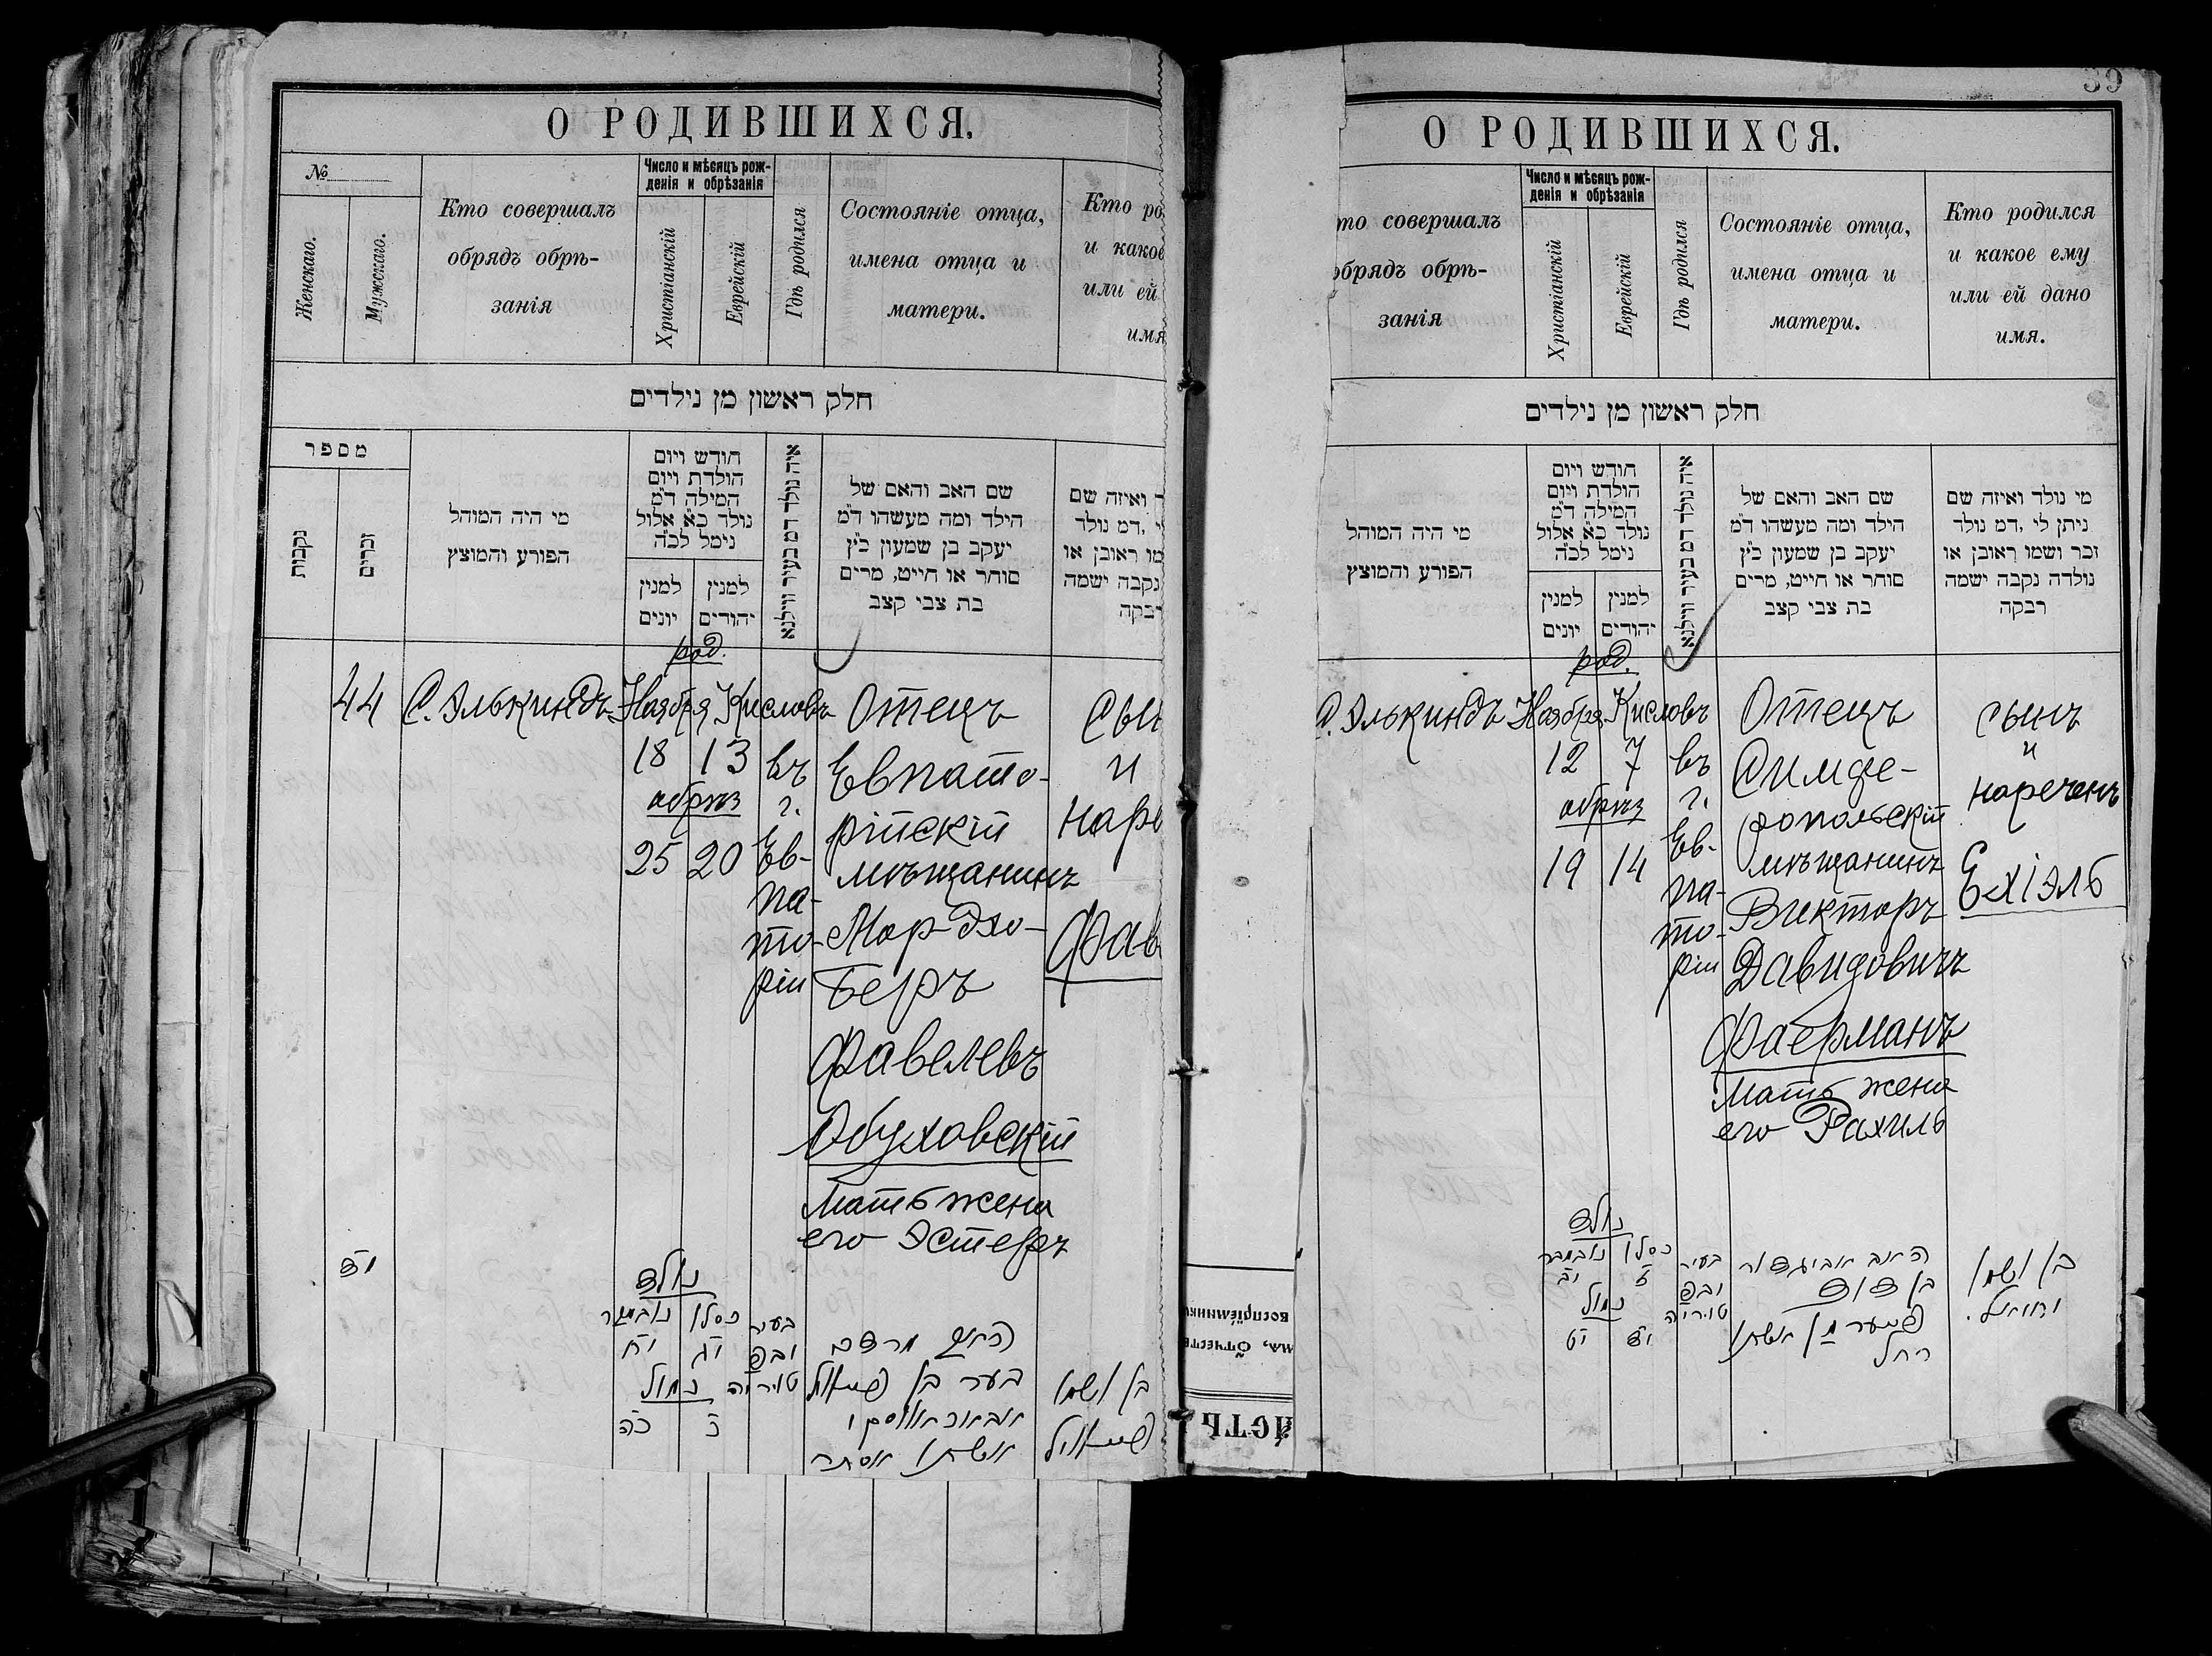 О РОДИВШИХСЯ.
№
Женскаго.
Мужскаго.
Кто совершалъ
обрядъ обрѣ-
занія
Число и мѣсяцъ рож-
денія и обрѣзанія
Христіанскій
Еврейскій
Гдѣ родился
Состояніе отца,
имена отца и
матери.
Кто ро
и какое
или ей
имя
חלק ראשון מן נילדים
מספר
נקבות
זכרים
מי היה המוהל
הפורע והמוצץ
חודש ויום
הולדת ויום
המילה ד״מ
נולד כ״א אלול
נימל לכ״ה
למנין
יונים
למנין
יהודים
איה נולד דמ בעיר ווילנא
שם האב והאם של
הילד ומה מעשהו ד״מ
יעקב בן שמעון כ״ץ
סוחר או חייט, מרים
בת צבי קצב
ר ואיזה שם
י, דמ נולד
מו ראובן או
נקבה ישמה
רבקה
род.
44
С. Элькиндъ
Ноября
Кисловъ
18
13
обрѣз
25
20
въ
г.
Ев-
па-
то-
ріи
Отецъ
Евпато-
рійскій
мѣщанинъ
Мордхо-
Беръ
Фавелевъ
Обуховскій
Мать жена
его Эстеръ
сын
и
наре
Фав
נולד
נובמבר
כסלו
י״ח
י״ג
נמול
כ״ה
כ
בעיר
יובפ
טוריה
האב מרדכי
בער בן
אשתו אסתר
בן ושמו
39
О РОДИВШИХСЯ.
то совершалъ
обрядъ обрѣ-
занія
Число и мѣсяцъ рож-
денія и обрѣзанія
Христіанскій
Еврейскій
Гдѣ родился
Состояніе отца,
имена отца и
матери.
Кто родился
и какое ему
или ей дано
имя.
חלק ראשון מן נילדים
מי היה המוהל
הפורע והמוצץ
חודש ויום
הולדת ויום
המילה ד״מ
נולד כ״א אלול
נימל לכ״ה
למנין
יונים
למנין
יהודים
איה נולד דמ בעיר ווילנא
שם האב והאם של
הילד ומה מעשהו ד״מ
יעקב בן שמעון כ״ץ
סוחר או חייט, מרים
בת צבי קצב
מי נולד ואיזה שם
ניתן לי, דמ נולד
זכר ושמו ראובן או
נולדה נקבה ישמה
רבקה
род.
С. Элькиндъ
Ноября
Кисловъ
12
7
обрѣз
19
14
въ
г.
Ев-
па-
то-
ріи
Отецъ
Симфе-
ропольскій
мѣщанинъ
Викторъ
Давидовичъ
Фаерманъ
Мать жена
его Рахиль
сынъ
и
нареченъ
Ехіэль
נולד
נובמבר
כסלו
י״ב
ז
נמול
י״ט
י״ד
בעיר
יובפ
טוריה
האב אביגדור
בן דוד
אשתו
רחל
בן ושמו
יחיאל.
воспріемник
мя, отчеств
АСТЬ